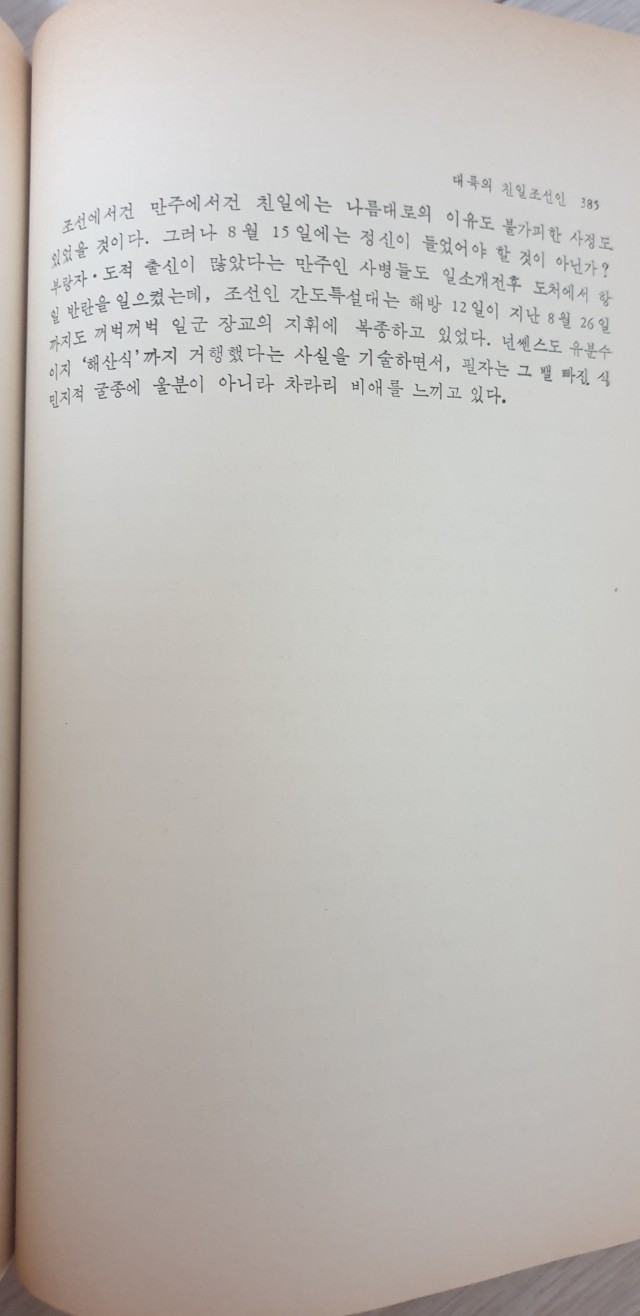 대륙의 친일조선인 385
조선에서건 만주에서건 친일에는 나름대로의 이유도 불가피한 사정도
있었을 것이다. 그러나 8월 15일에는 정신이 들었어야 할 것이 아닌가?
부랑자·도적 출신이 많았다는 만주인 사병들도 일소개전후 도처에서 항
일 반란을 일으켰는데, 조선인 간도특설대는 해방 12일이 지난 8월 26일
까지도 꺼벅꺼벅 일군 장교의 지휘에 복종하고 있었다. 넌쎈스도 유분수
이지 ‘해산식’까지 거행했다는 사실을 기술하면서, 필자는 그 밸 빠진 식
민지적 굴종에 울분이 아니라 차라리 비애를 느끼고 있다.